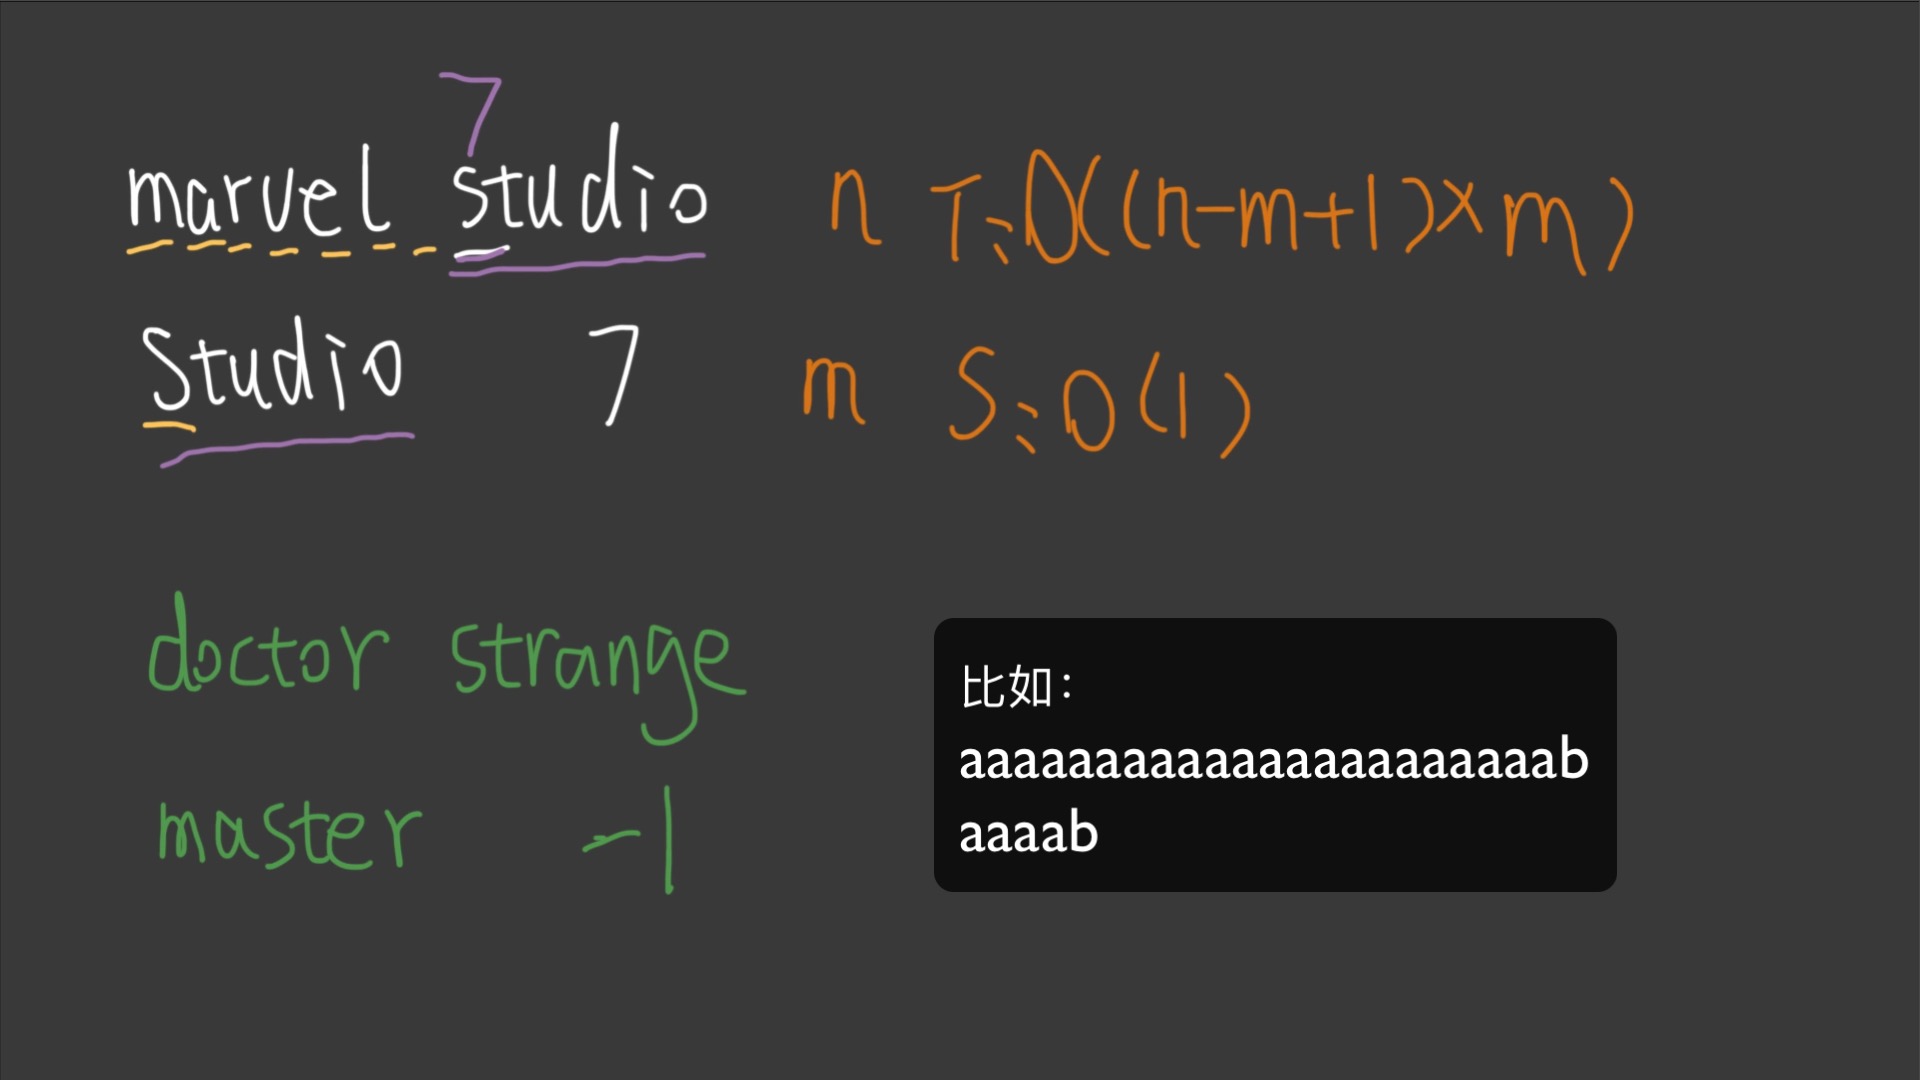 7
marvel studio n T:O((n-m+1)×m)
Studio 7 m S:O(1)
doctor strange
master -1
比如：
aaaaaaaaaaaaaaaaaaaaaab
aaaab